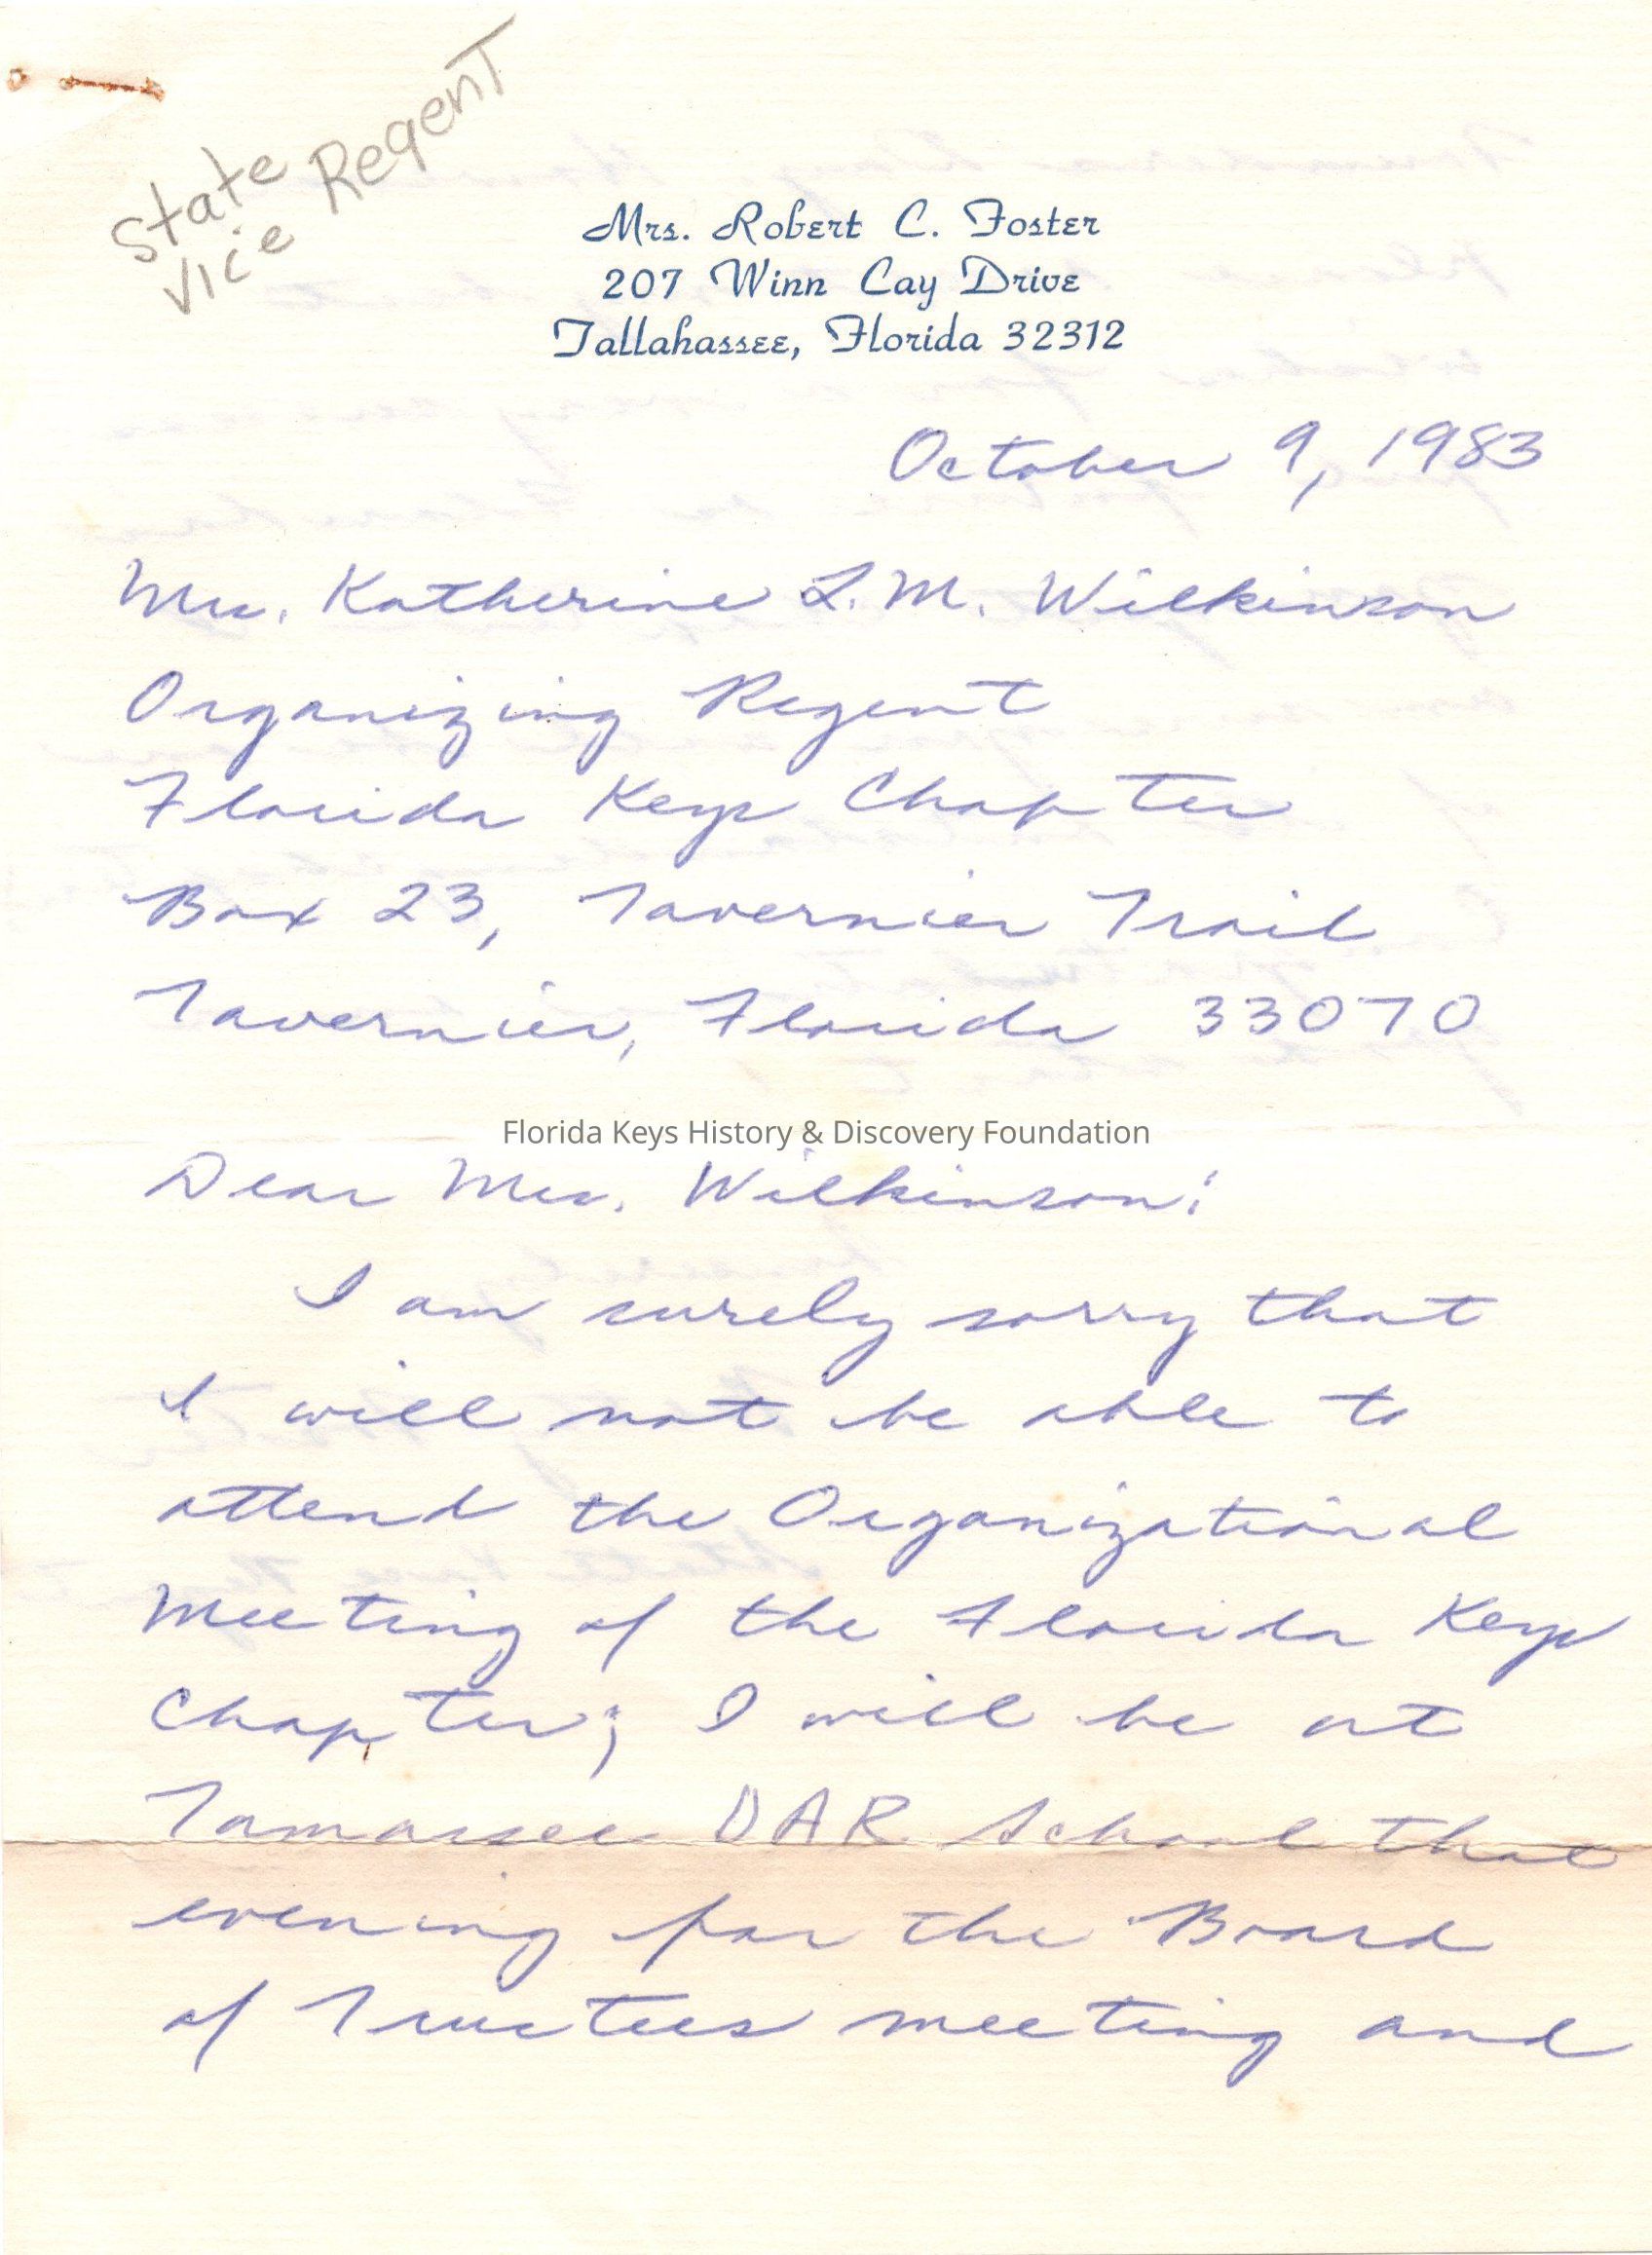 State
Vice Regent
Mrs. Robert C. Foster
207 Winn Cay Drive
Tallahassee, Florida 32312
October 9, 1983
Mrs. Katherine L.M. Wilkinson
Organizing Regent
Florida Keys Chapter
Box 23, Tavernier Trail
Tavernier, Florida 33070
Florida Keys History & Discovery Foundation
Dear Mrs. Wilkinson:
I am surely sorry that
I will not be able to
attend the Organizational
Meeting of the Florida Keys
Chapter; I will be at
Tamassee DAR School that
evening for the Board
of Trustees meeting and